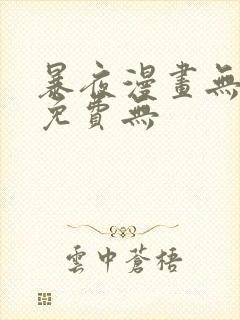 暴夜漫畫無
免費無
雲中蒼梧